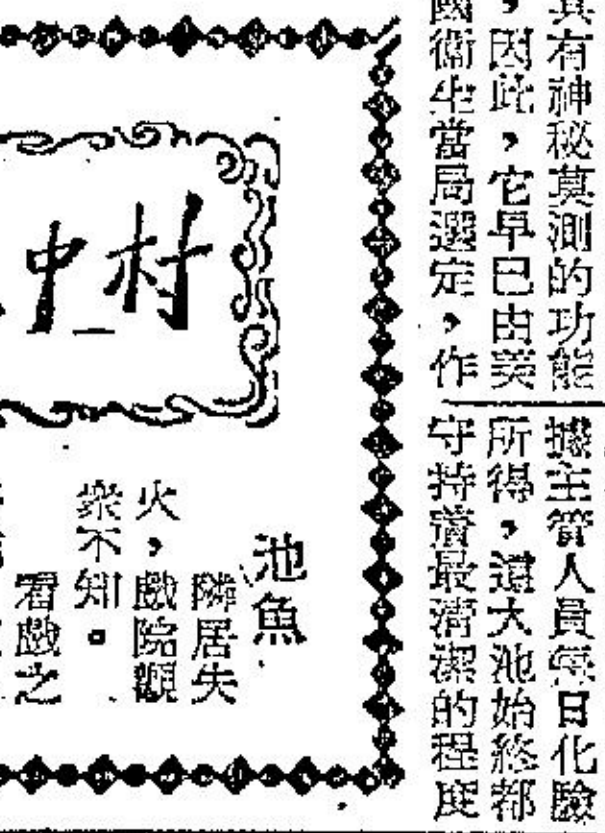 有神秘莫測的功能
，因此，它早已由美
國衛生當局選定，作
據主管人員每日化驗
所得，這大池始終都
守持着最清潔的程度
村中
池魚
隣居失
火，戲院觀
衆不知。
看戲之